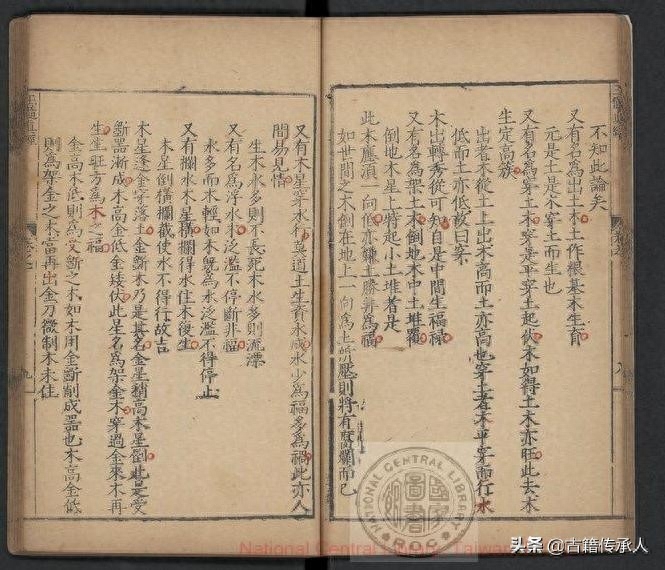 不知此論矣
又有名為出土木土作根基木生育
元是土是木穿土而生也
又有名為穿土木穿是平穿土起伏木如得土木亦旺此去木
生定高族
出者木從土上出木高而土亦高也穿土者木平穿而行水
低而土亦低故曰案
木出轉秀從可知自是中間生福祿
又有名為架土木倒地木中土堆覆
倒地木星上特起小土堆者是
此木應須一向低亦鎌土勝并為福
如世間之木倒在地上一向為土所壓則將有腐爛而已
又有木星穿水行莫道土生資水成水少為福多為禍此亦人
間易見情
生木水多則不長死木水多則流漂
又有名為浮水木泛濫不停斷非福
水多而木輕如木既為水泛濫不得停止
又有攔水木星橫攔得水住木後生
木星倒橫攔截使水不得行故吉
木星逢金穿落土金斷木乃是其名金星稍高木星劉此是受
斷器漸成木高金低金矮伏此星名為架金木穿過金來木再
生生旺方為木之福
金高木低則為受斷之木如木用金斷削成器也木高金低
則為架金之木當再出金刀微制木未住
九
八
NATIONAL CENTRAL LIBRARY
R.O.C.
國家圖書館
National Central Library, Taiwan
头条 @古籍传承人